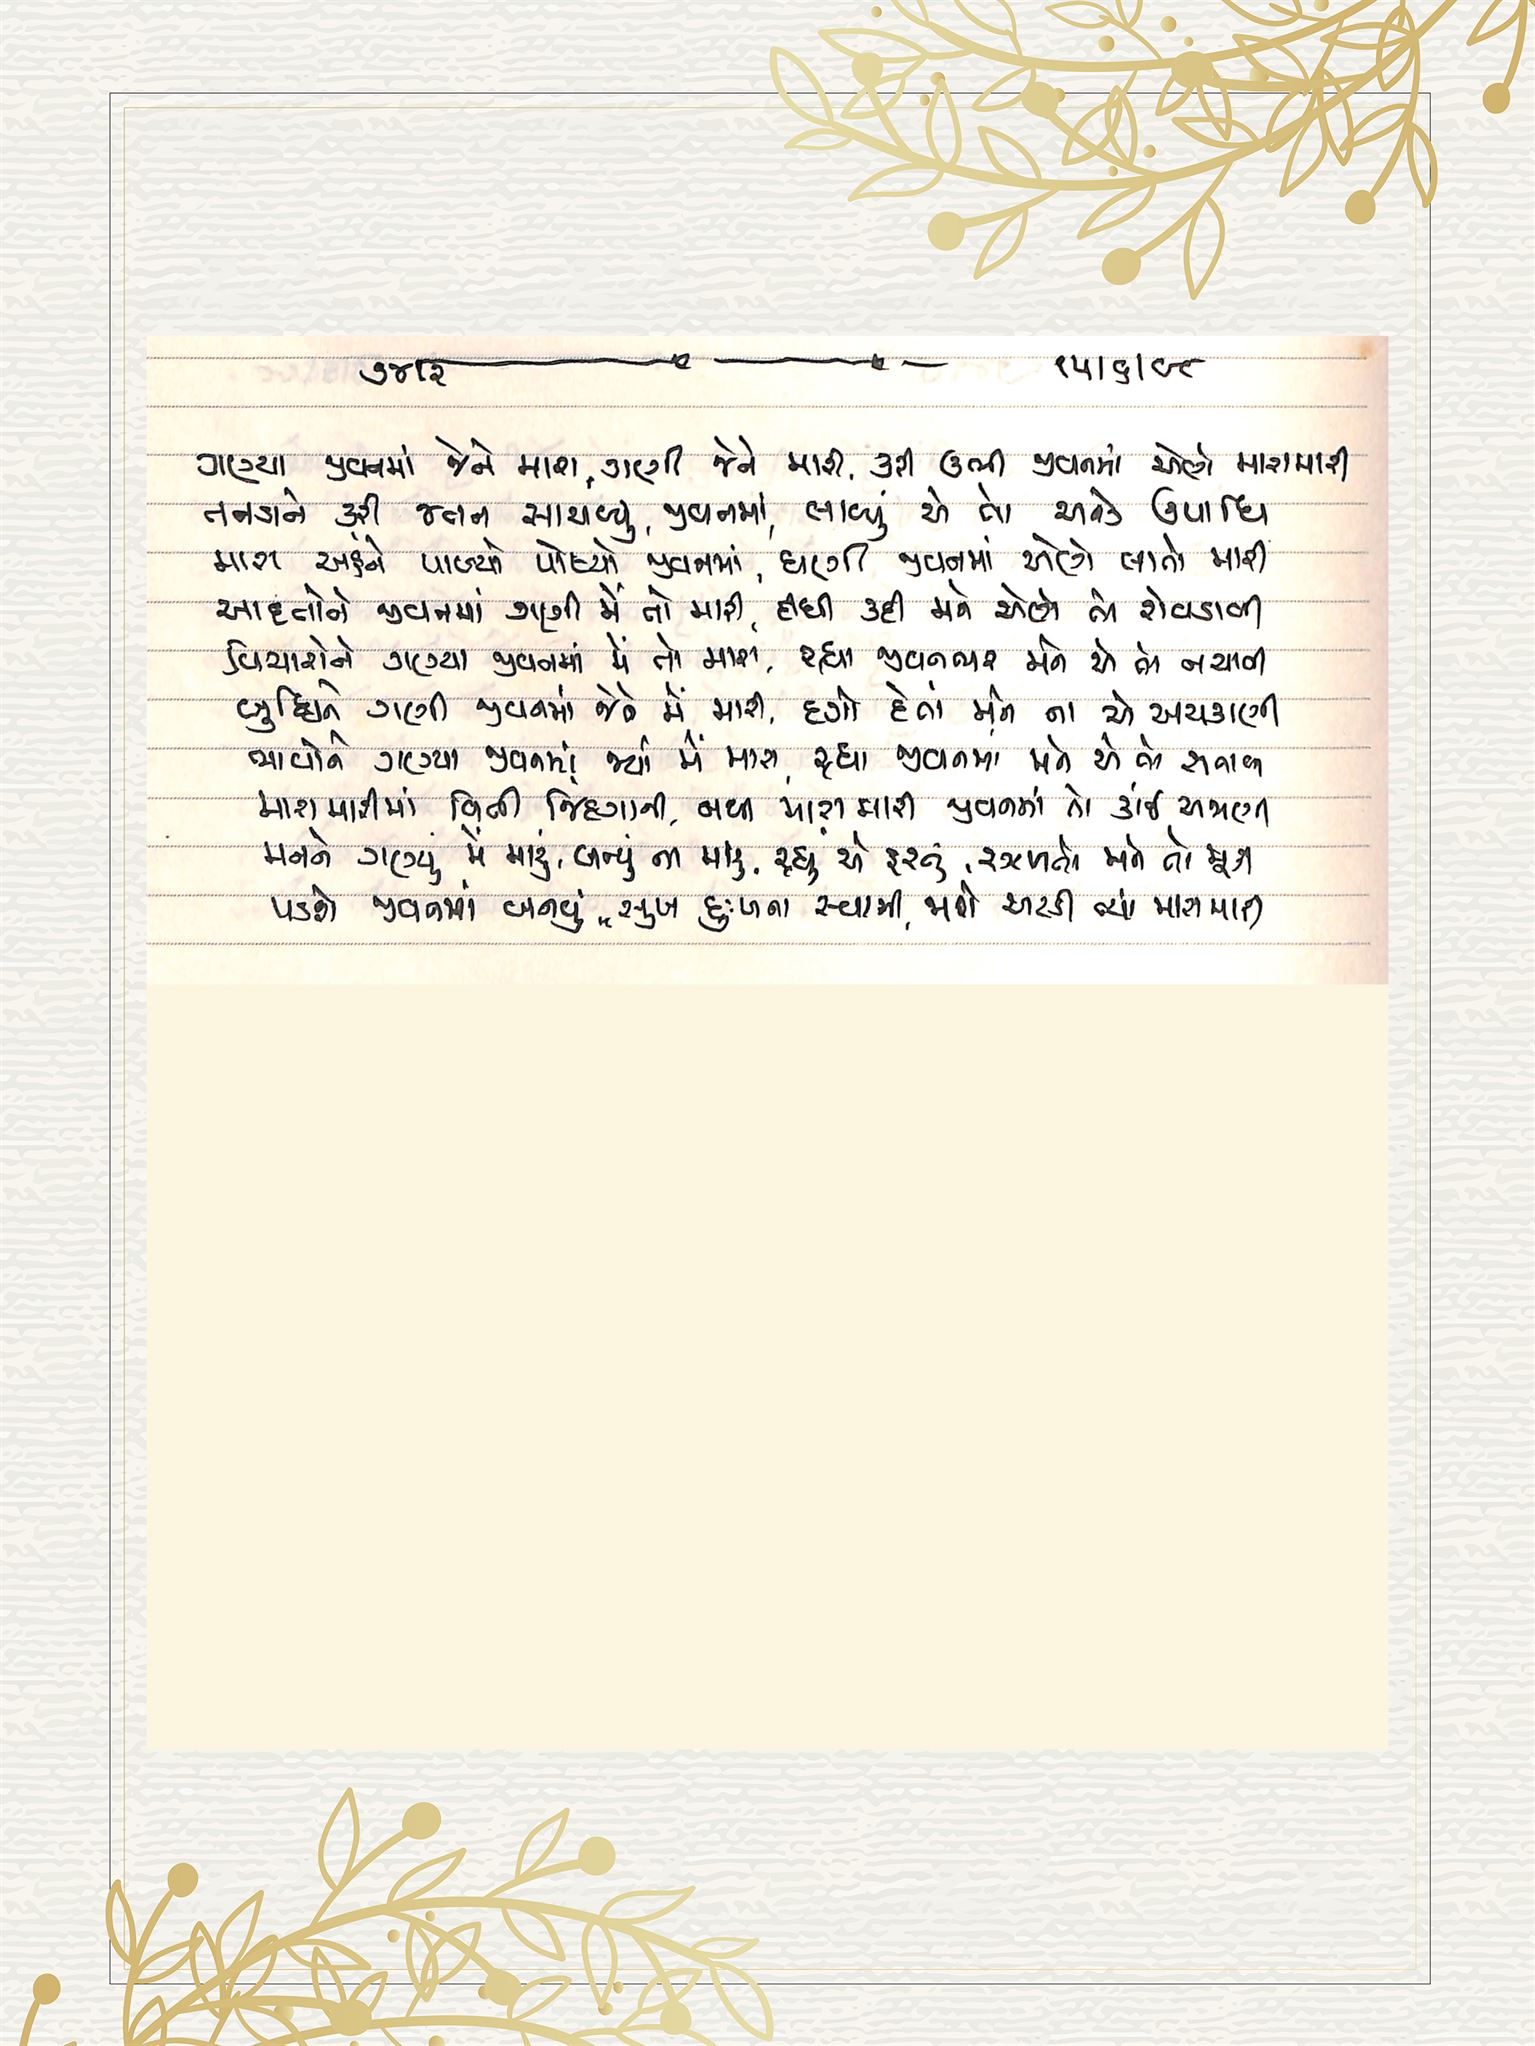 ૭૪૧૨ ૧૫/૬/૯૮
ગણ્યા જીવનમાં જેને મારા, ગણી જેને મારી, કરી ઉભી જીવનમાં એણે મારામારી
તનડાને કરી જતન સાચવ્યું, જીવનમાં, લાવ્યું એ તો અનેક ઉપાધિ
મારા અહંને પાળ્યો પોષ્યો જીવનમાં, ઘણી જીવનમાં એણે લાતો મારી
આદતોને જીવનમાં ગણી મેં તો મારી, દીધી કદી મને એણે તો રોવડાવી
વિચારોને ગણ્યા જીવનમાં મેં તો મારા, રહ્યા જીવનભર મને એ તો નચાવી
બુદ્ધિને ગણી જીવનમાં જેને મેં મારી, દગો દેતાં મને ના એ અચકાણી
ભાવોને ગણ્યા જીવનમાં જ્યાં મેં મારા, રહ્યા જીવનમાં મને એ તો
મારામારીમાં વિતી જિંદગાની, બધી મારામારી જીવનમાં તો કાંઈ અજાણી
મનને ગણ્યું મેં મારું, બન્યું ના મારું, રહ્યું એ ફરતું, મને તો
પડશે જીવનમાં બનવું, સુખ દુઃખના સ્વામી, જાશે અટકી ત્યાં મારામારી